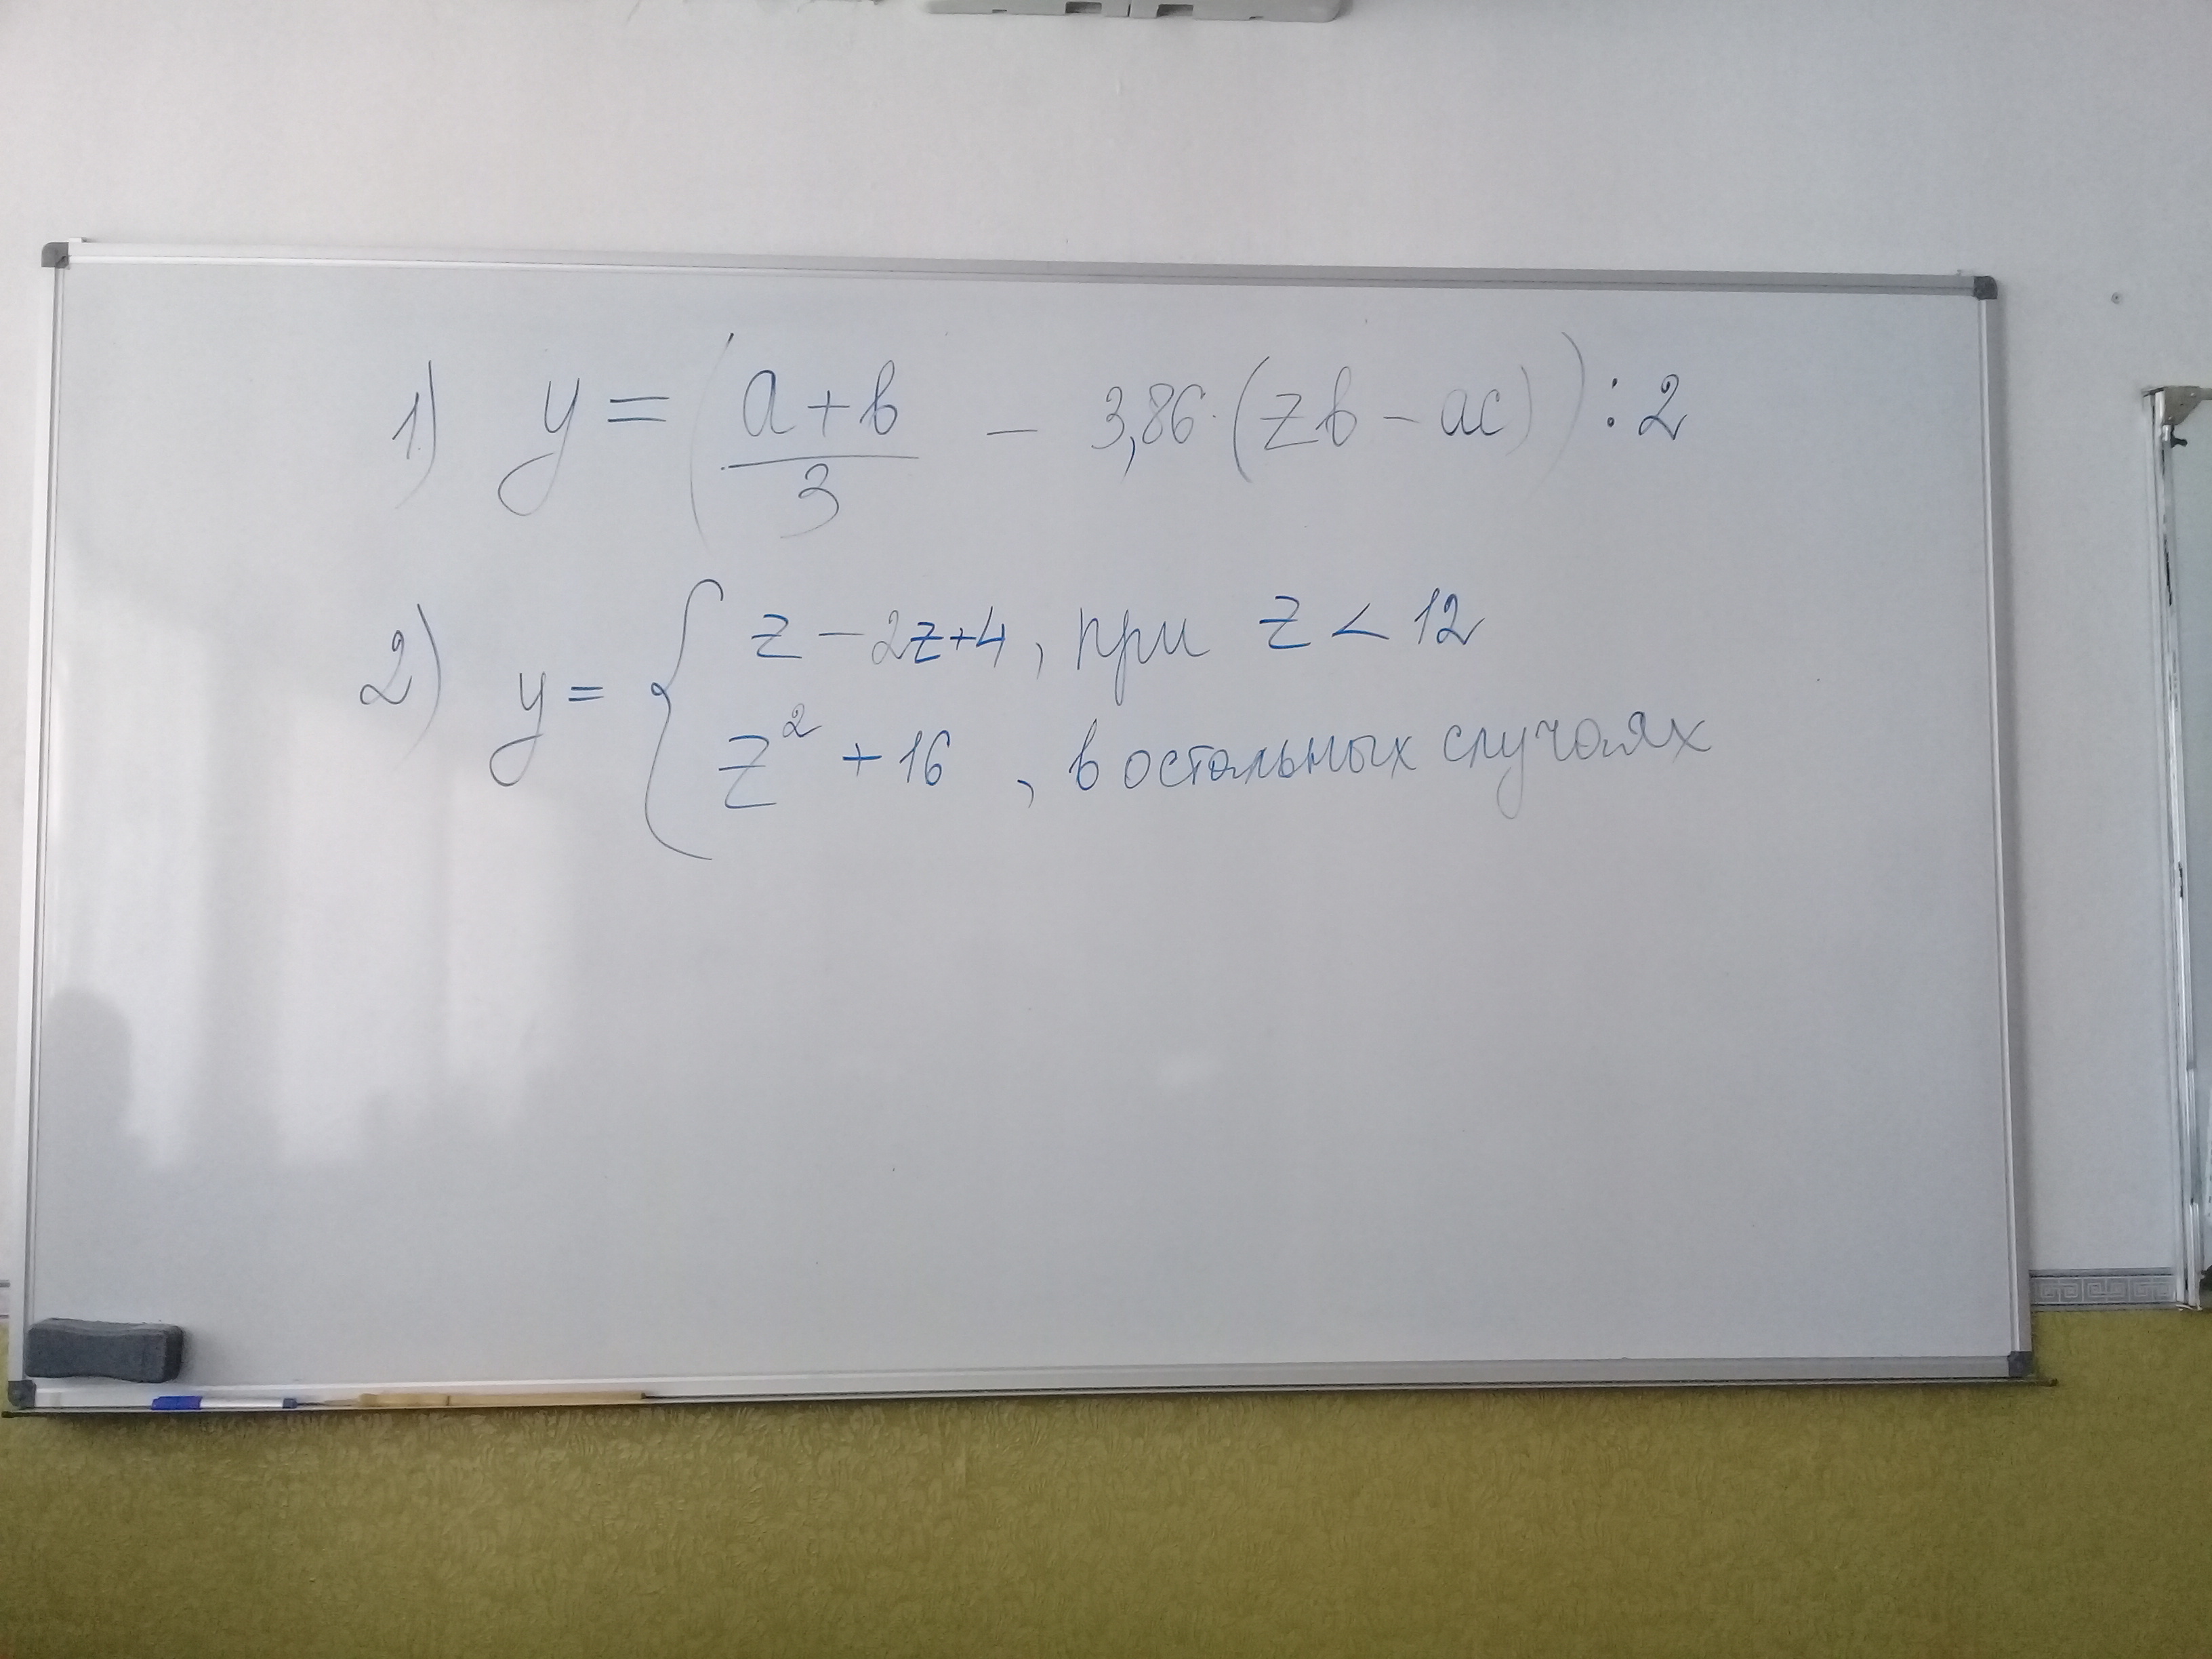 1) y = (a+b/3 - 3,86·(zb-ac)) : 2
2) y = { z-2z+4, при z < 12
z² + 16, в остальных случаях